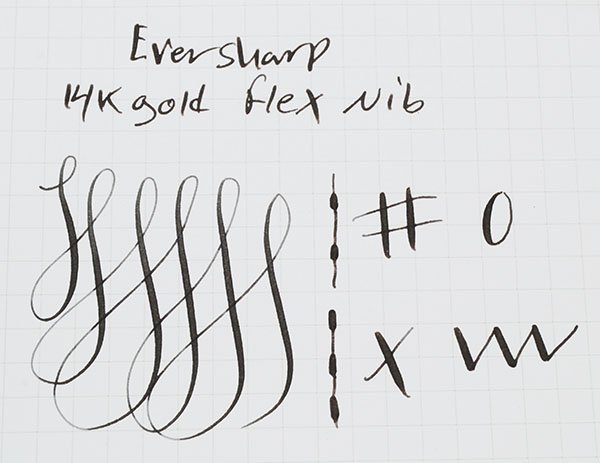 Eversharp
14K gold flex nib
# 0
X